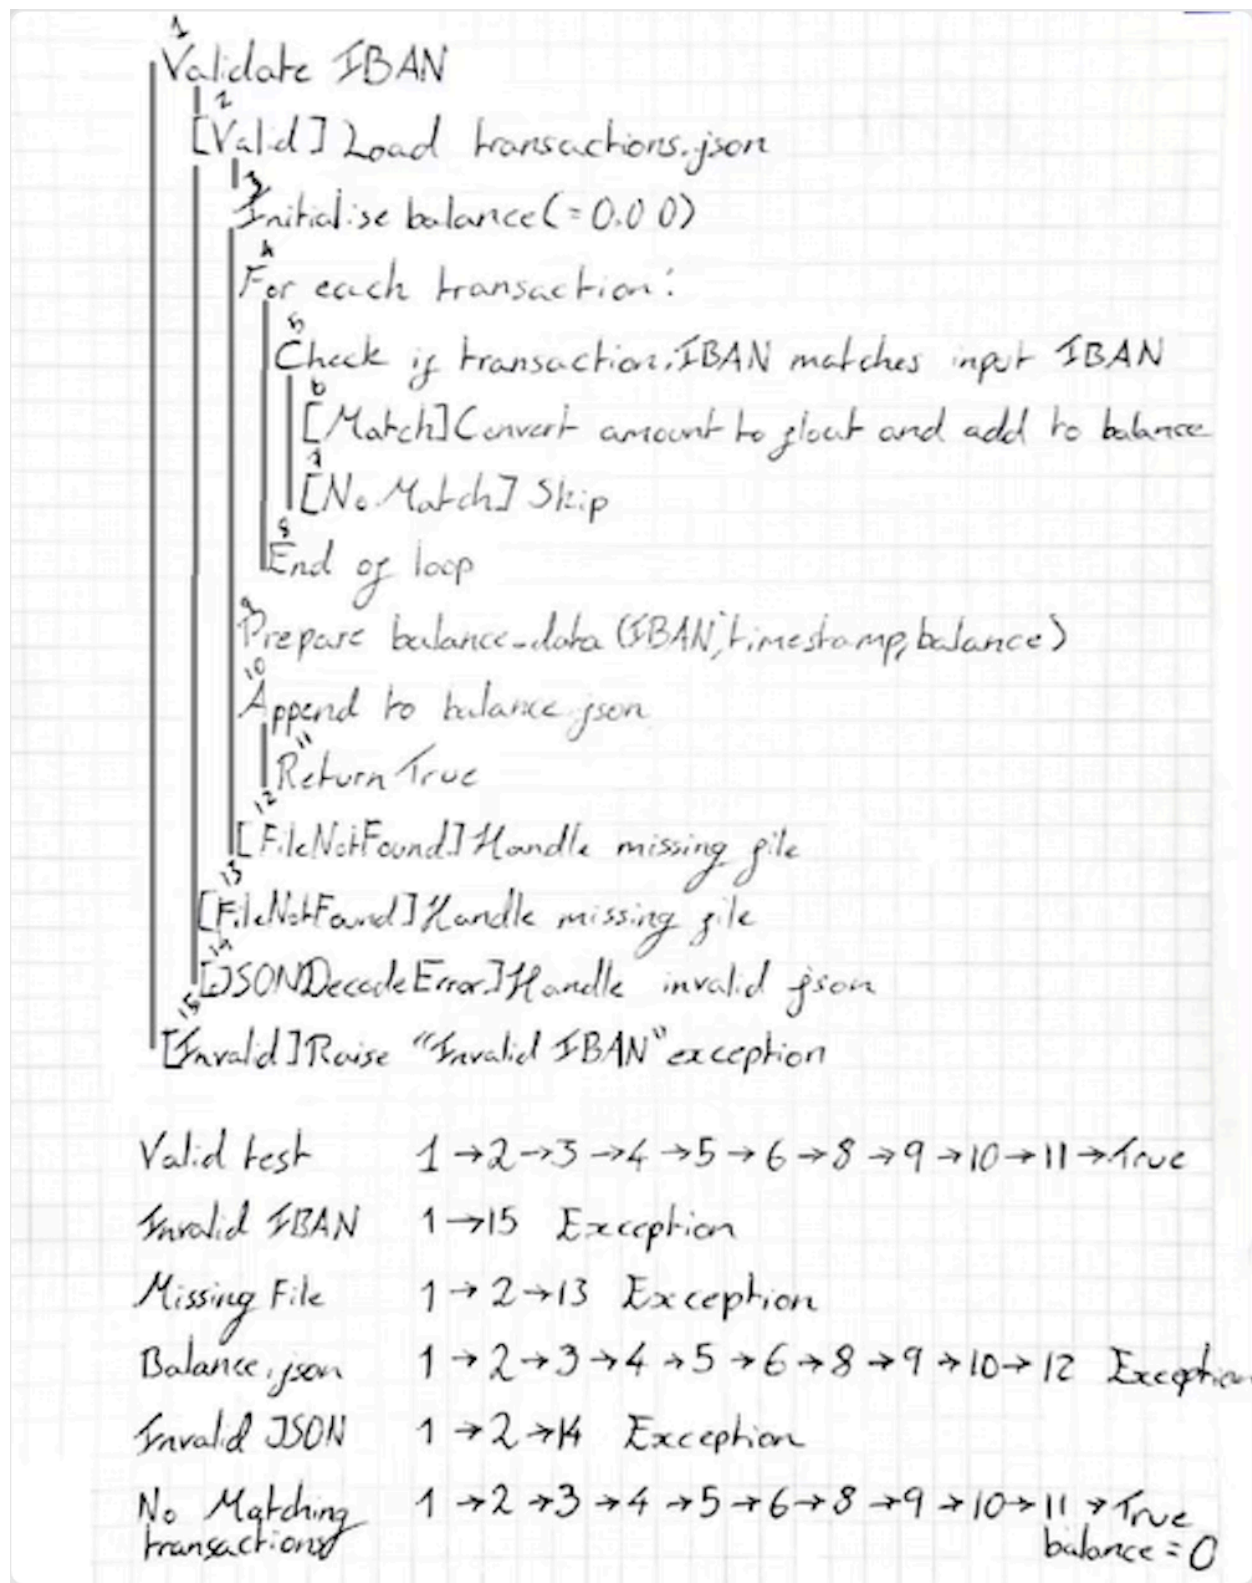 1
Validate IBAN
2
[Valid] Load transactions.json
3
Initialise balance(=0.00)
4
For each transaction:
5
Check if transaction.IBAN matches input IBAN
6
[Match] Convert amount to float and add to balance
7
[No Match] Skip
8
End of loop
9
Prepare balance-data (IBAN, timestamp, balance)
10
Append to balance.json
11
Return True
12
[FileNotFound] Handle missing file
13
[FileNotFound] Handle missing file
14
[JSONDecodeError] Handle invalid json
15
[Invalid] Raise "Invalid IBAN" exception
Valid test 1→2→3→4→5→6→8→9→10→11→True
Invalid IBAN 1→15 Exception
Missing File 1→2→13 Exception
Balance.json 1→2→3→4→5→6→8→9→10→12 Exception
Invalid JSON 1→2→14 Exception
No Matching 1→2→3→4→5→6→8→9→10→11→True
transactions balance=0